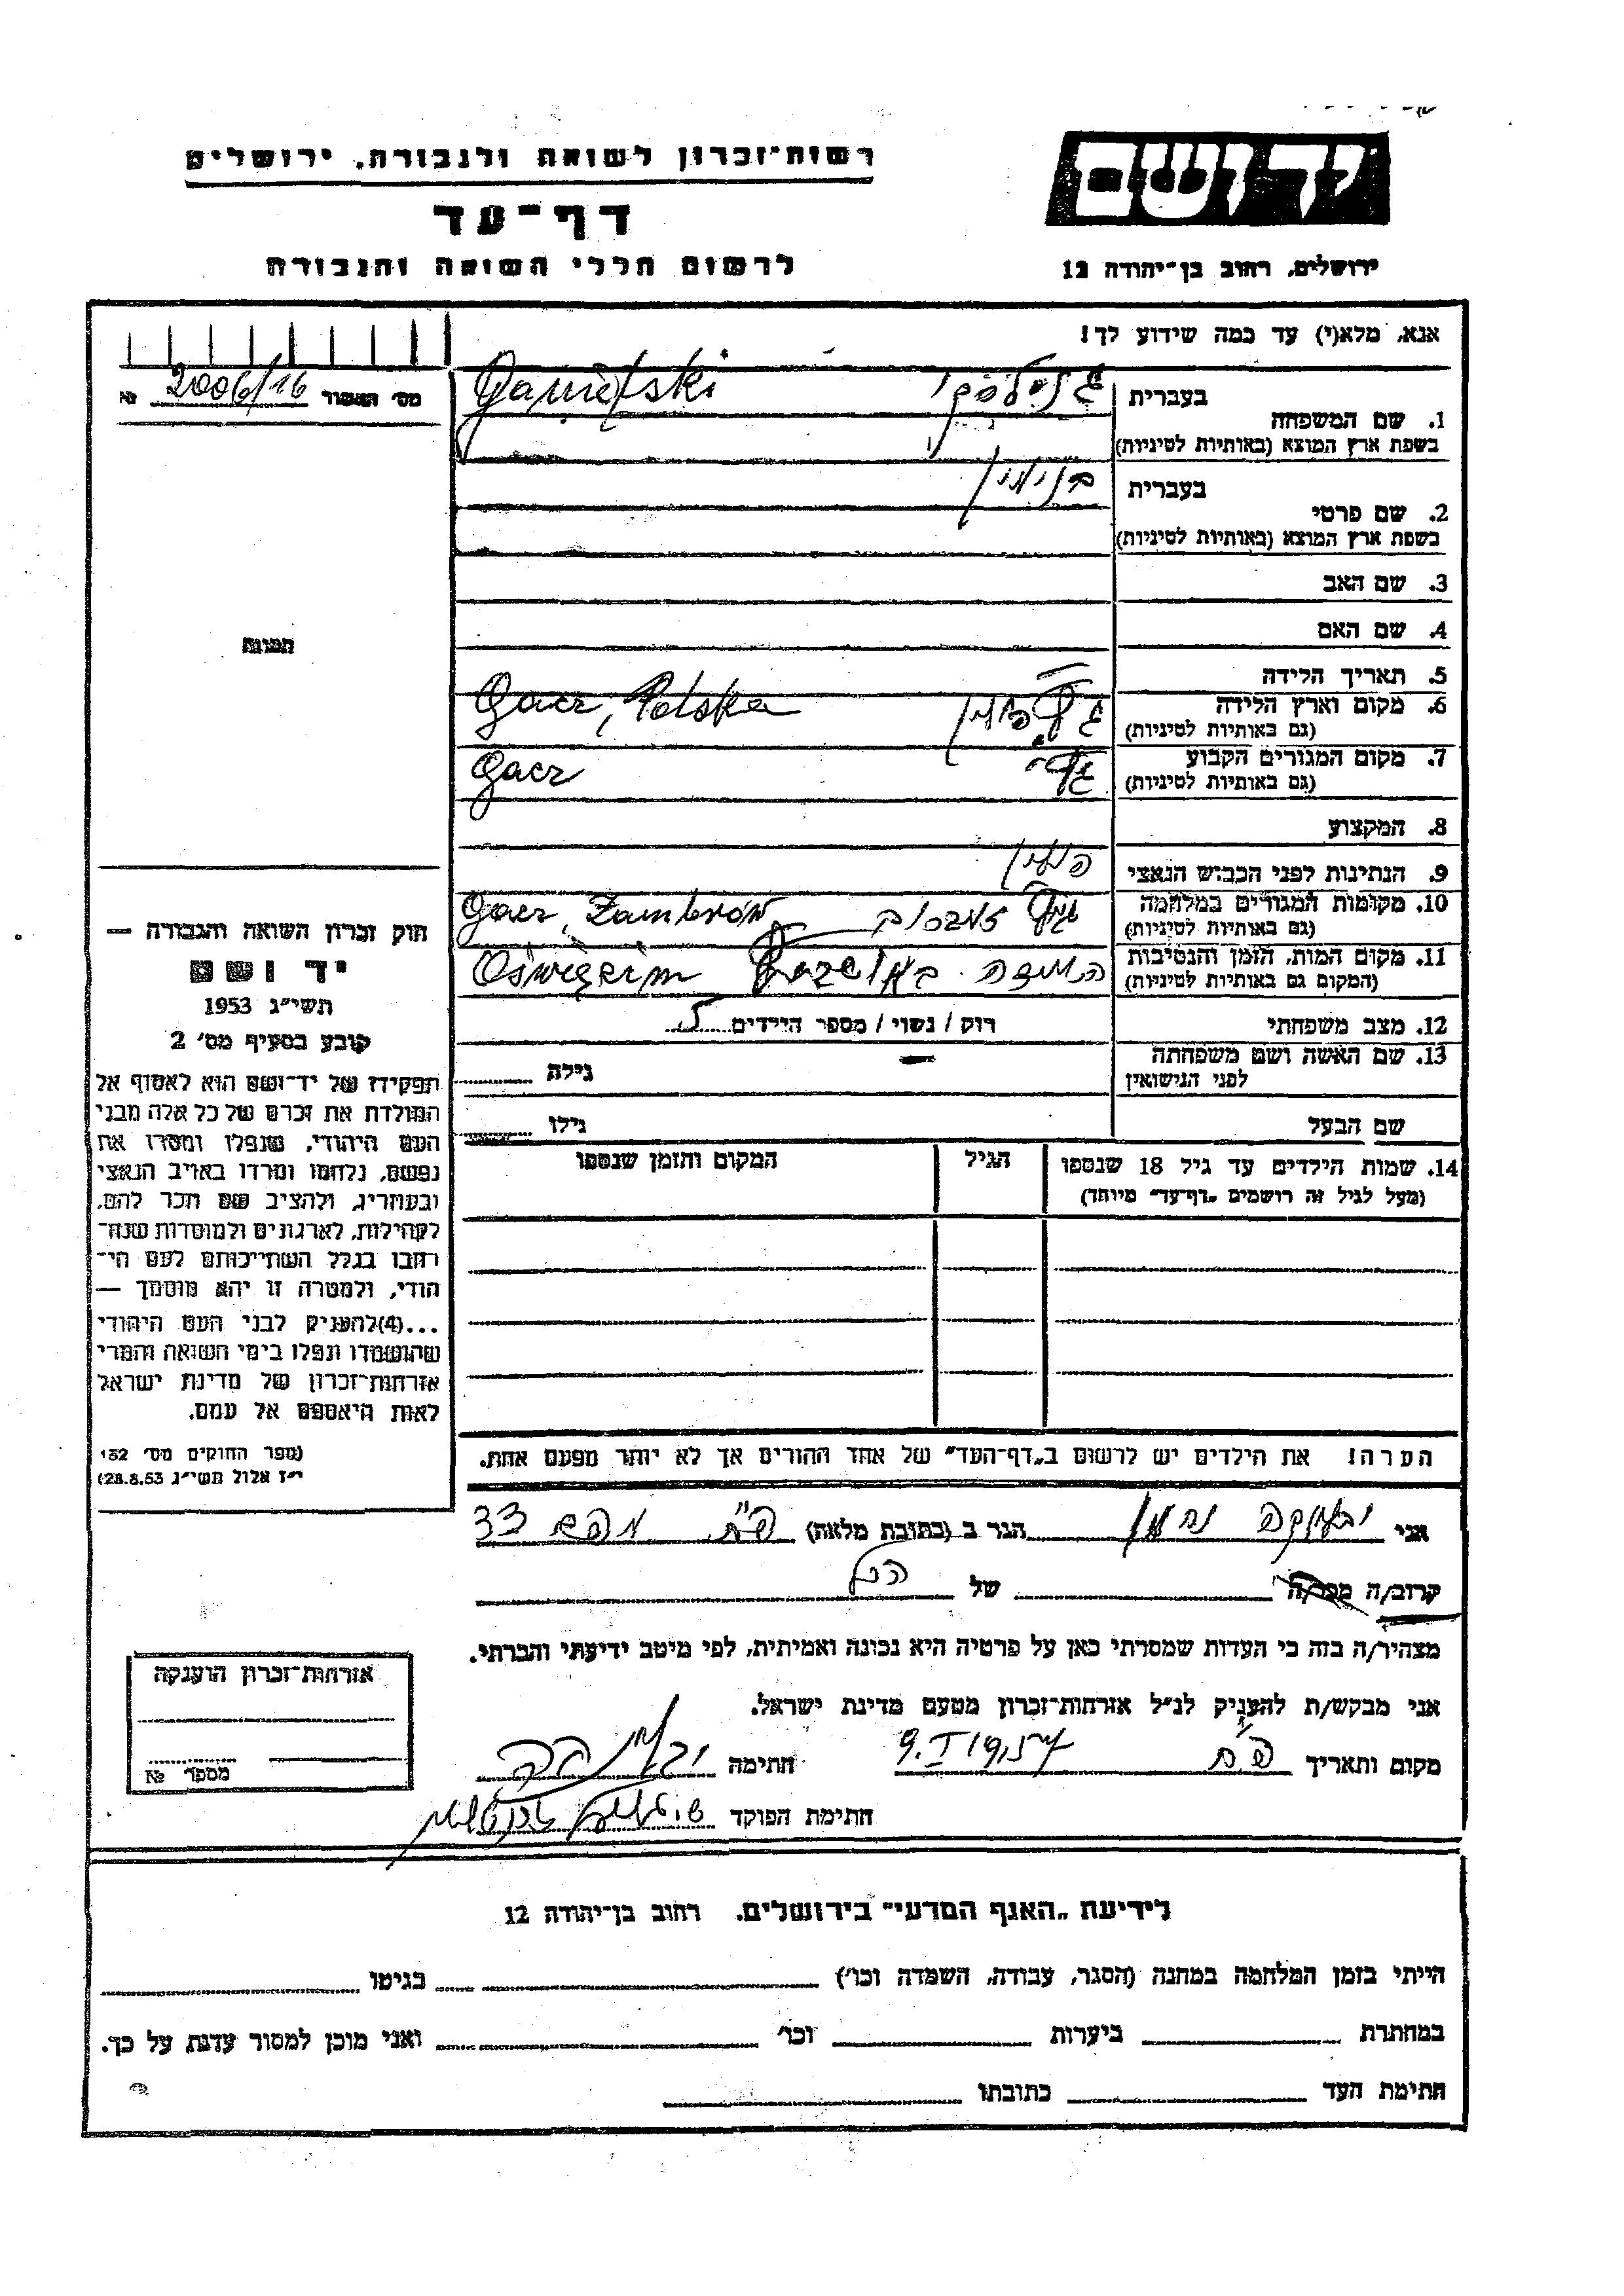 רשות-זכרון לשואה ולגבורה, ירושלים
יד ושם
דף-עד
לרשום חללי השואה והגבורה
ירושלים, רחוב בן-יהודה 12
אנא, מלא(י) עד כמה שידוע לך!
מס' האשור 2006/16 №
1. שם המשפחה
בעברית
בשפת ארץ המוצא (באותיות לטיניות)
Ganielski
2. שם פרטי
בעברית בנימין
בשפת ארץ המוצא (באותיות לטיניות)
3. שם האב
4. שם האם
5. תאריך הלידה
6. מקום וארץ הלידה
(גם באותיות לטיניות)
Gacz, Polska
7. מקום המגורים הקבוע
(גם באותיות לטיניות)
Gacz
8. המקצוע
9. הנתינות לפני הכבוש הנאצי
10. מקומות המגורים במלחמה
(גם באותיות לטיניות)
Gacz, Zambrów
11. מקום המות, הזמן והנסיבות
(המקום גם באותיות לטיניות)
Oświęcim
12. מצב משפחתי רוק / נשוי / מספר הילדים
13. שם האשה ושם משפחתה
לפני הנישואין
גילה
שם הבעל גילו
14. שמות הילדים עד גיל 18 שנספו
(מעל לגיל זה רושמים „דף-עד" מיוחד)
הגיל
המקום והזמן שנספו
הערה! את הילדים יש לרשום ב„דף-העד" של אחד ההורים אך לא יותר מפעם אחת.
תמונה
חוק זכרון השואה והגבורה —
יד ושם
תשי"ג 1953
קובע בסעיף מס' 2
תפקידו של יד-ושם הוא לאסוף אל
המולדת את זכרם של כל אלה מבני
העם היהודי, שנפלו ומסרו את
נפשם, נלחמו ומרדו באויב הנאצי
ובעוזריו, ולהציב שם וזכר להם,
לקהילות, לארגונים ולמוסדות שנח-
רבו בגלל השתייכותם לעם הי-
הודי, ולמטרה זו יהא מוסמך —
...(4)להעניק לבני העם היהודי
שהושמדו ונפלו בימי השואה והמרי
אזרחות-זכרון של מדינת ישראל
לאות היאספם אל עמם.
(ספר החוקים מס' 132
י"ז אלול תשי"ג 28.8.53)
אני נחמן הגר ב (כתובת מלאה) 33
קרוב/ה מכר/ה של הנ"ל
מצהיר/ה בזה כי העדות שמסרתי כאן על פרטיה היא נכונה ואמיתית, לפי מיטב ידיעתי והכרתי.
אני מבקש/ת להעניק לנ"ל אזרחות-זכרון מטעם מדינת ישראל.
מקום ותאריך חתימה
חתימת הפוקד
אזרחות-זכרון הוענקה
מספר №
לידיעת „האגף המדעי" בירושלים. רחוב בן-יהודה 12
הייתי בזמן המלחמה במחנה (הסגר, עבודה, השמדה וכו') בגיטו
במחתרת ביערות וכו' ואני מוכן למסור עדות על כך.
חתימת העד כתובתו